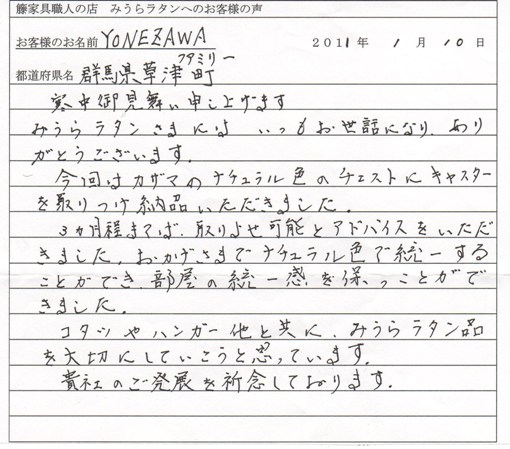 籐家具職人の店　みうらラタンへのお客様の声
お客様のお名前 YONEZAWA 2011年 1月 10日
ファミリー
都道府県名 群馬県草津町
寒中御見舞い申し上げます
みうらラタンさまには いつもお世話になり、あり
がとうございます。
今回はカザマのナチュラル色のチェストにキャスター
を取りつけ納品いただきました。
3ヵ月程まてば、取りよせ可能とアドバイスをいただ
きました。おかげさまでナチュラル色で統一する
ことができ、部屋の統一感を保つことがで
きました。
コタツやハンガー他と共に、みうらラタン品
を大切にしていこうと思っています。
貴社のご発展を祈念しております。